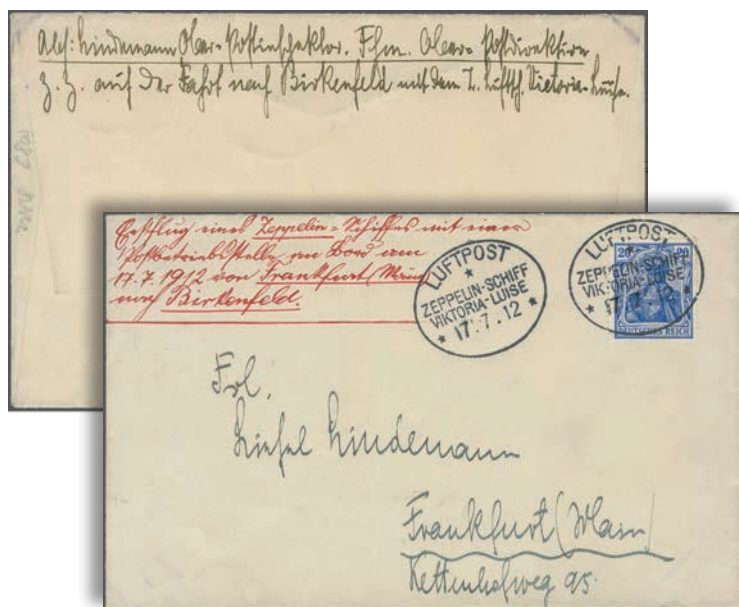 Abs: Lindemann Ober-Postinspektor. Ffm. Ober-Postdirektion
z. Z. auf der Fahrt nach Birkenfeld mit dem Z. Luftsch. Victoria-Luise.
Erstflug eines Zeppelin-Schiffes mit einer
Postbetriebsstelle an Bord am
17.7.1912 von Frankfurt (Main)
nach Birkenfeld.
LUFTPOST
ZEPPELIN-SCHIFF
VIKTORIA-LUISE
17.7.12
LUFTPOST
ZEPPELIN-SCHIFF
VIKTORIA-LUISE
17.7.12
20 20
DEUTSCHES REICH
Frl.
Liesel Lindemann
Frankfurt (Main)
Kettenhofweg 95.